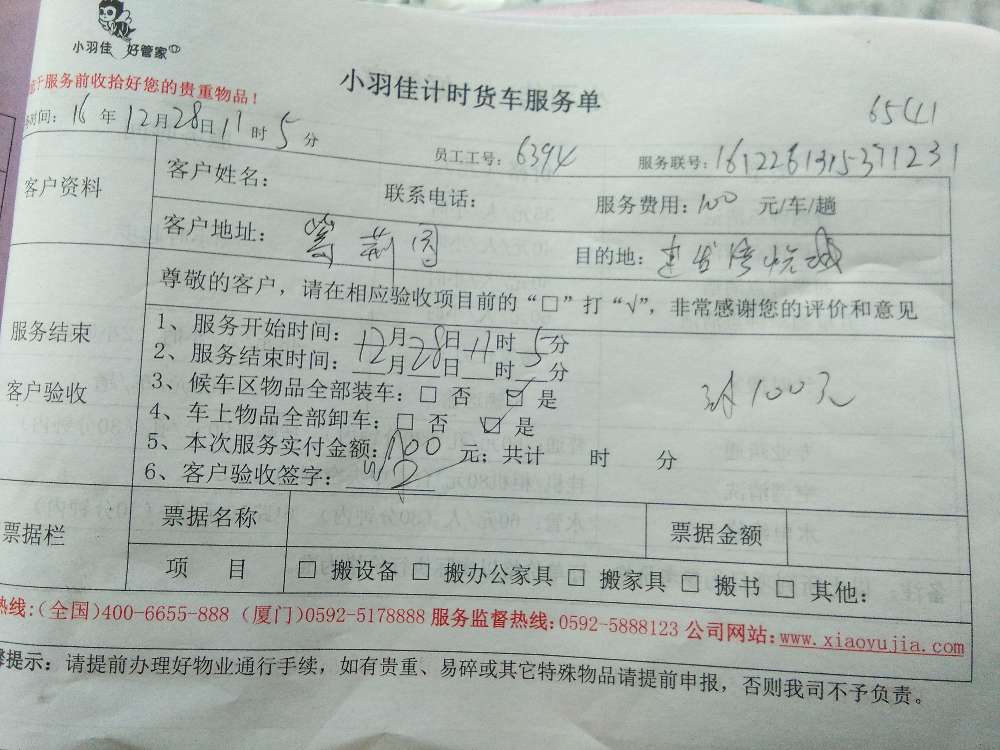 小羽佳 好管家
于服务前收拾好您的贵重物品!
小羽佳计时货车服务单
6541
时间: 16 年 12月28日11时5分
员工工号: 6394
服务联号: 1612261315371231
客户资料
客户姓名:
联系电话:
服务费用: 100 元/车/趟
客户地址: 紫荆园
目的地: 建发湾悦城
尊敬的客户,请在相应验收项目前的“□”打“√”,非常感谢您的评价和意见
服务结束
客户验收
1、服务开始时间: 12月28日11时5分
2、服务结束时间:__月__日__时__分
3、候车区物品全部装车: □ 否 ☑ 是
4、车上物品全部卸车: □ 否 ☑ 是
5、本次服务实付金额: 100 元;共计 时 分
6、客户验收签字:
100元
票据栏
票据名称
票据金额
项 目
□ 搬设备 □ 搬办公家具 □ 搬家具 □ 搬书 □ 其他:
热线:(全国)400-6655-888 (厦门)0592-5178888 服务监督热线:0592-5888123 公司网站:www.xiaoyujia.com
提示: 请提前办理好物业通行手续,如有贵重、易碎或其它特殊物品请提前申报,否则我司不予负责。